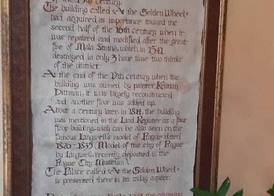 of the 13th century.
The building called »At the Golden Wheel«
had acquired its importance toward the
second half of the 16th century when it
was repaired and modified after the great
fire of Mala Strana, which in 1541
destroyed in only 3 hour time two thirds
of the district.
At the end of the 17th century when the
building was owned by painter Kristian
Dittman, it was largely reconstructed
and another floor was added up.
About a century later in 1811, the building
was mentioned in the Land Register as a four
floor building, wich can be also seen on the
famous Langweil's model of Prague (dated
1826-1837) (Model of the city of Prague
by Langweil is recently deposited in the
Prague City Museum).
The Palace called »At the Golden Wheel«
is presented there in its today aspect.